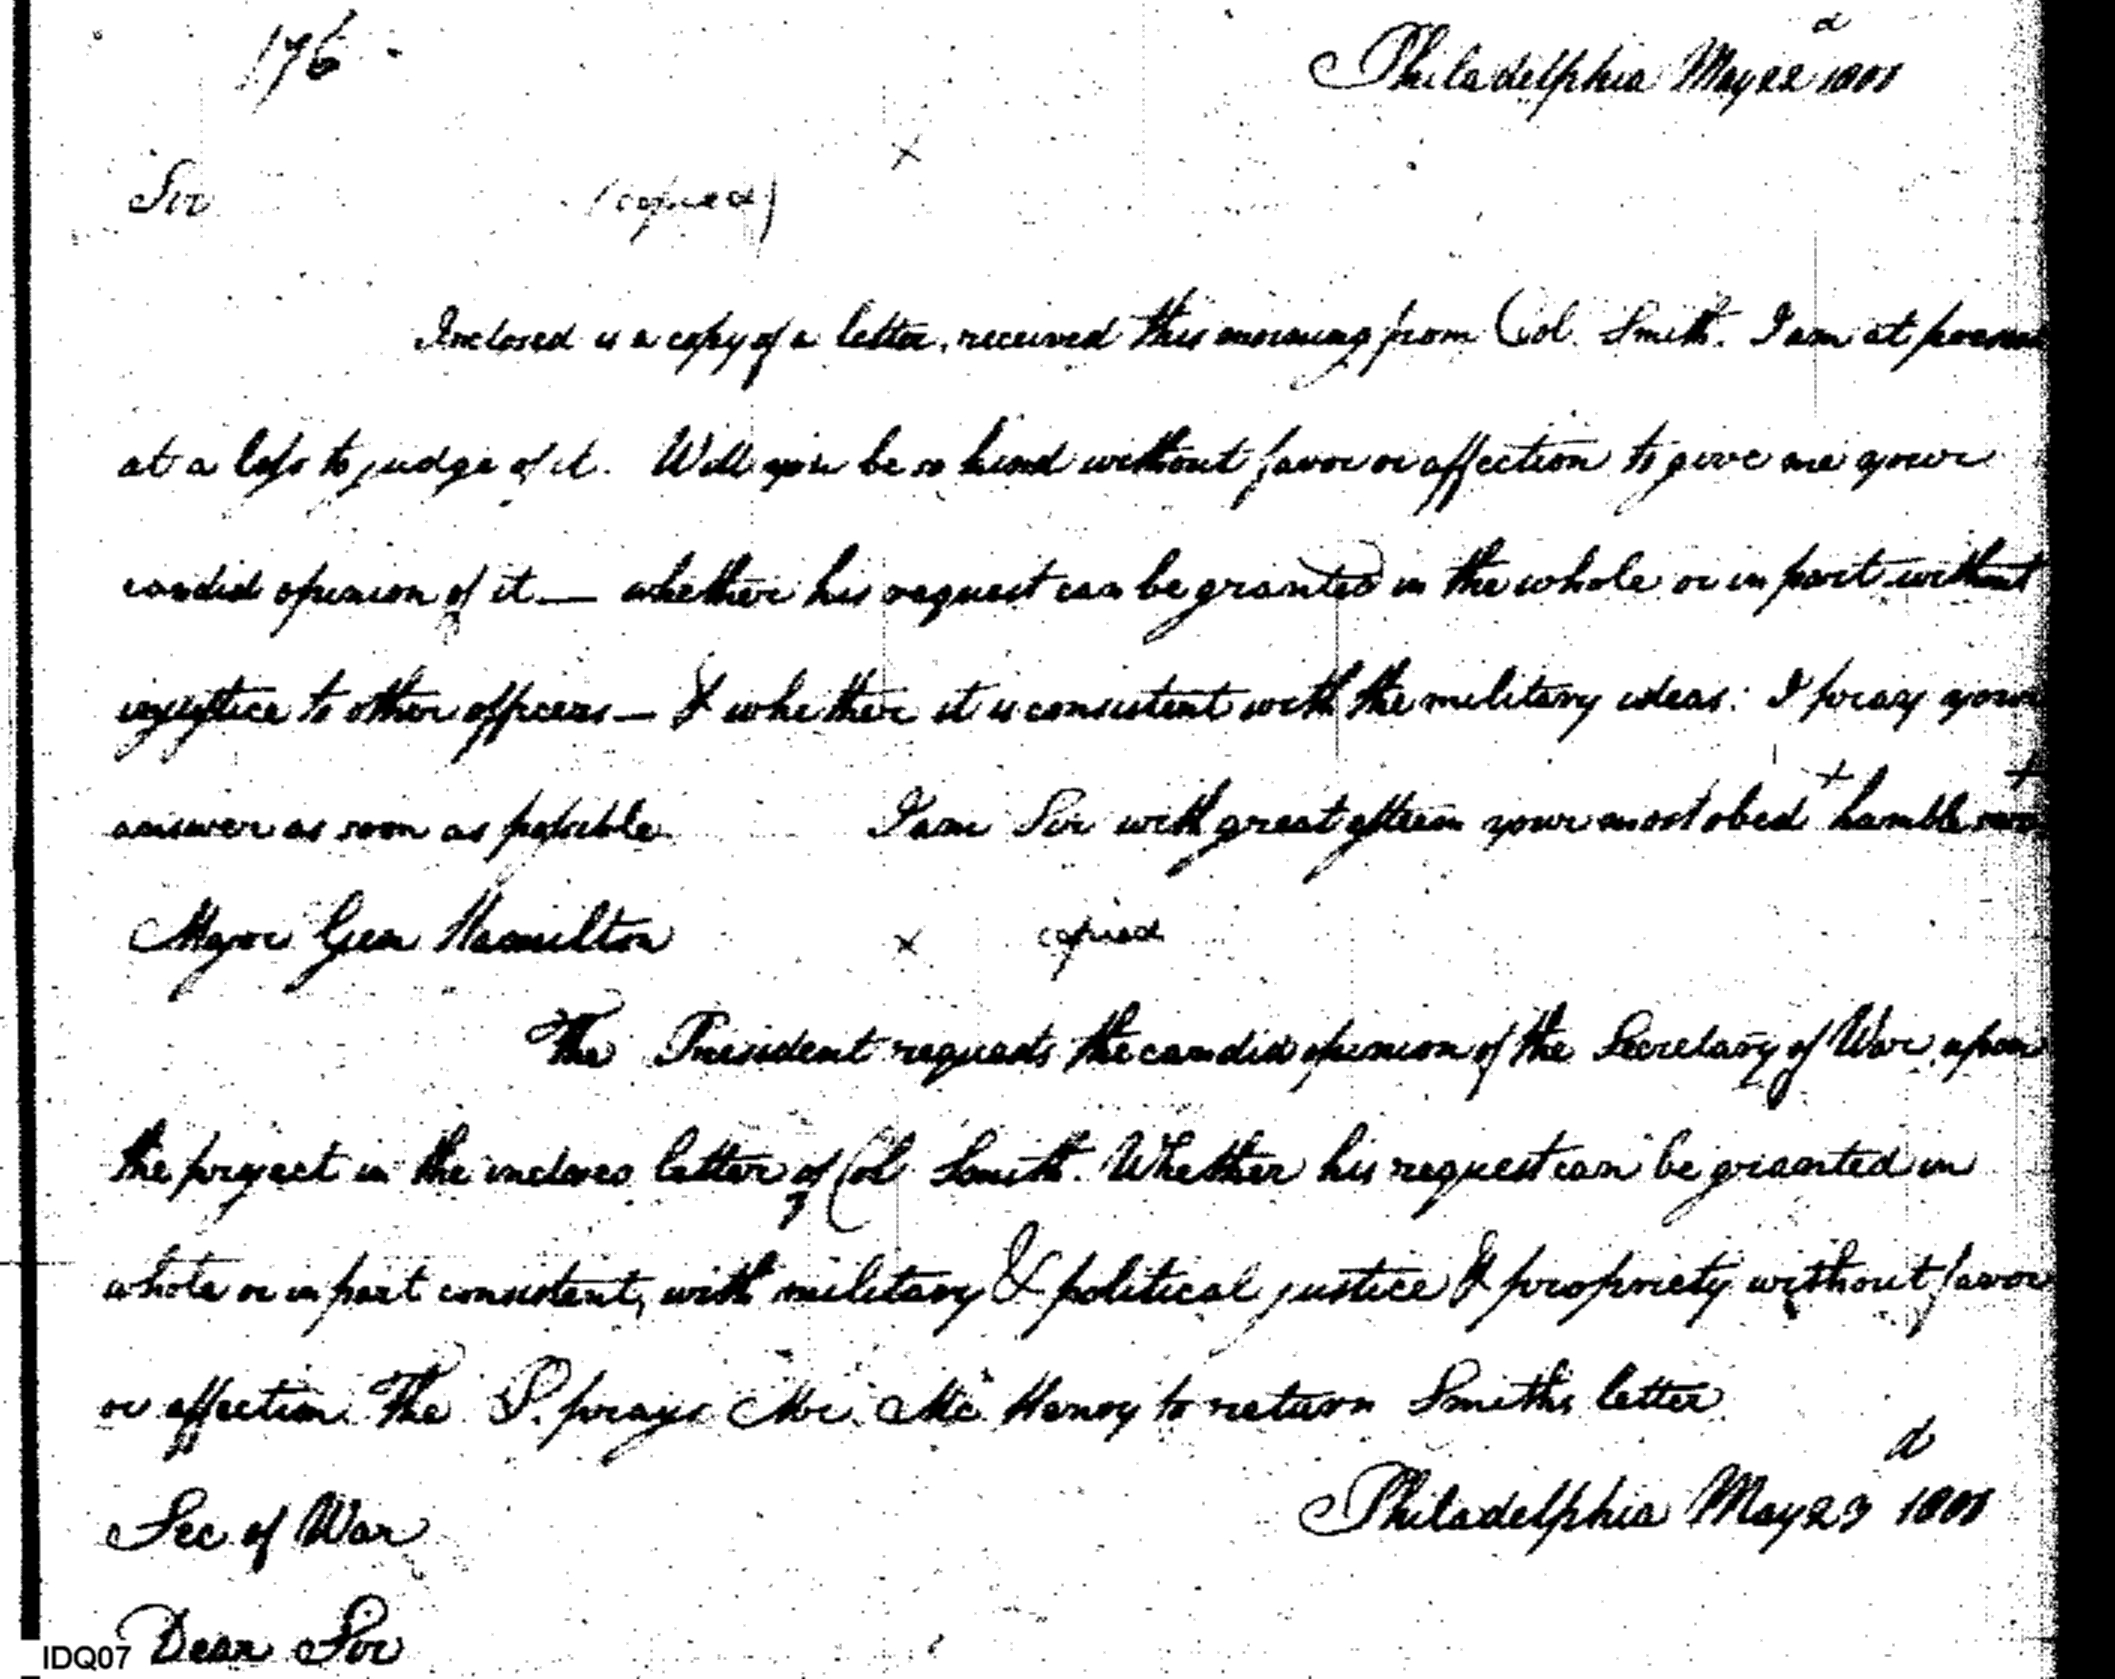 176
Philadelphia May 22d 1800
Sir
(copied)
Inclosed is a copy of a letter, received this morning from Col. Smith. I am at present
at a loss to judge of it. Will you be so kind without favor or affection to give me your
candid opinion of it — whether his request can be granted in the whole or in part without
injustice to other officers — & whether it is consistent with the military ideas: I pray your
answer as soon as possible I am Sir with great esteem your most obedt humble
Major Gen Hamilton
copied
The President requests the candid opinion of the Secretary of War, upon
the project in the inclosed letter of Col Smith. Whether his request can be granted in
whole or in part consistent, with military & political justice & propriety without favor
or affection. The P. prays Mr. McHenry to return Smiths letter
Sec of War
Philadelphia May 23d 1800
IDQ07 Dear Sir